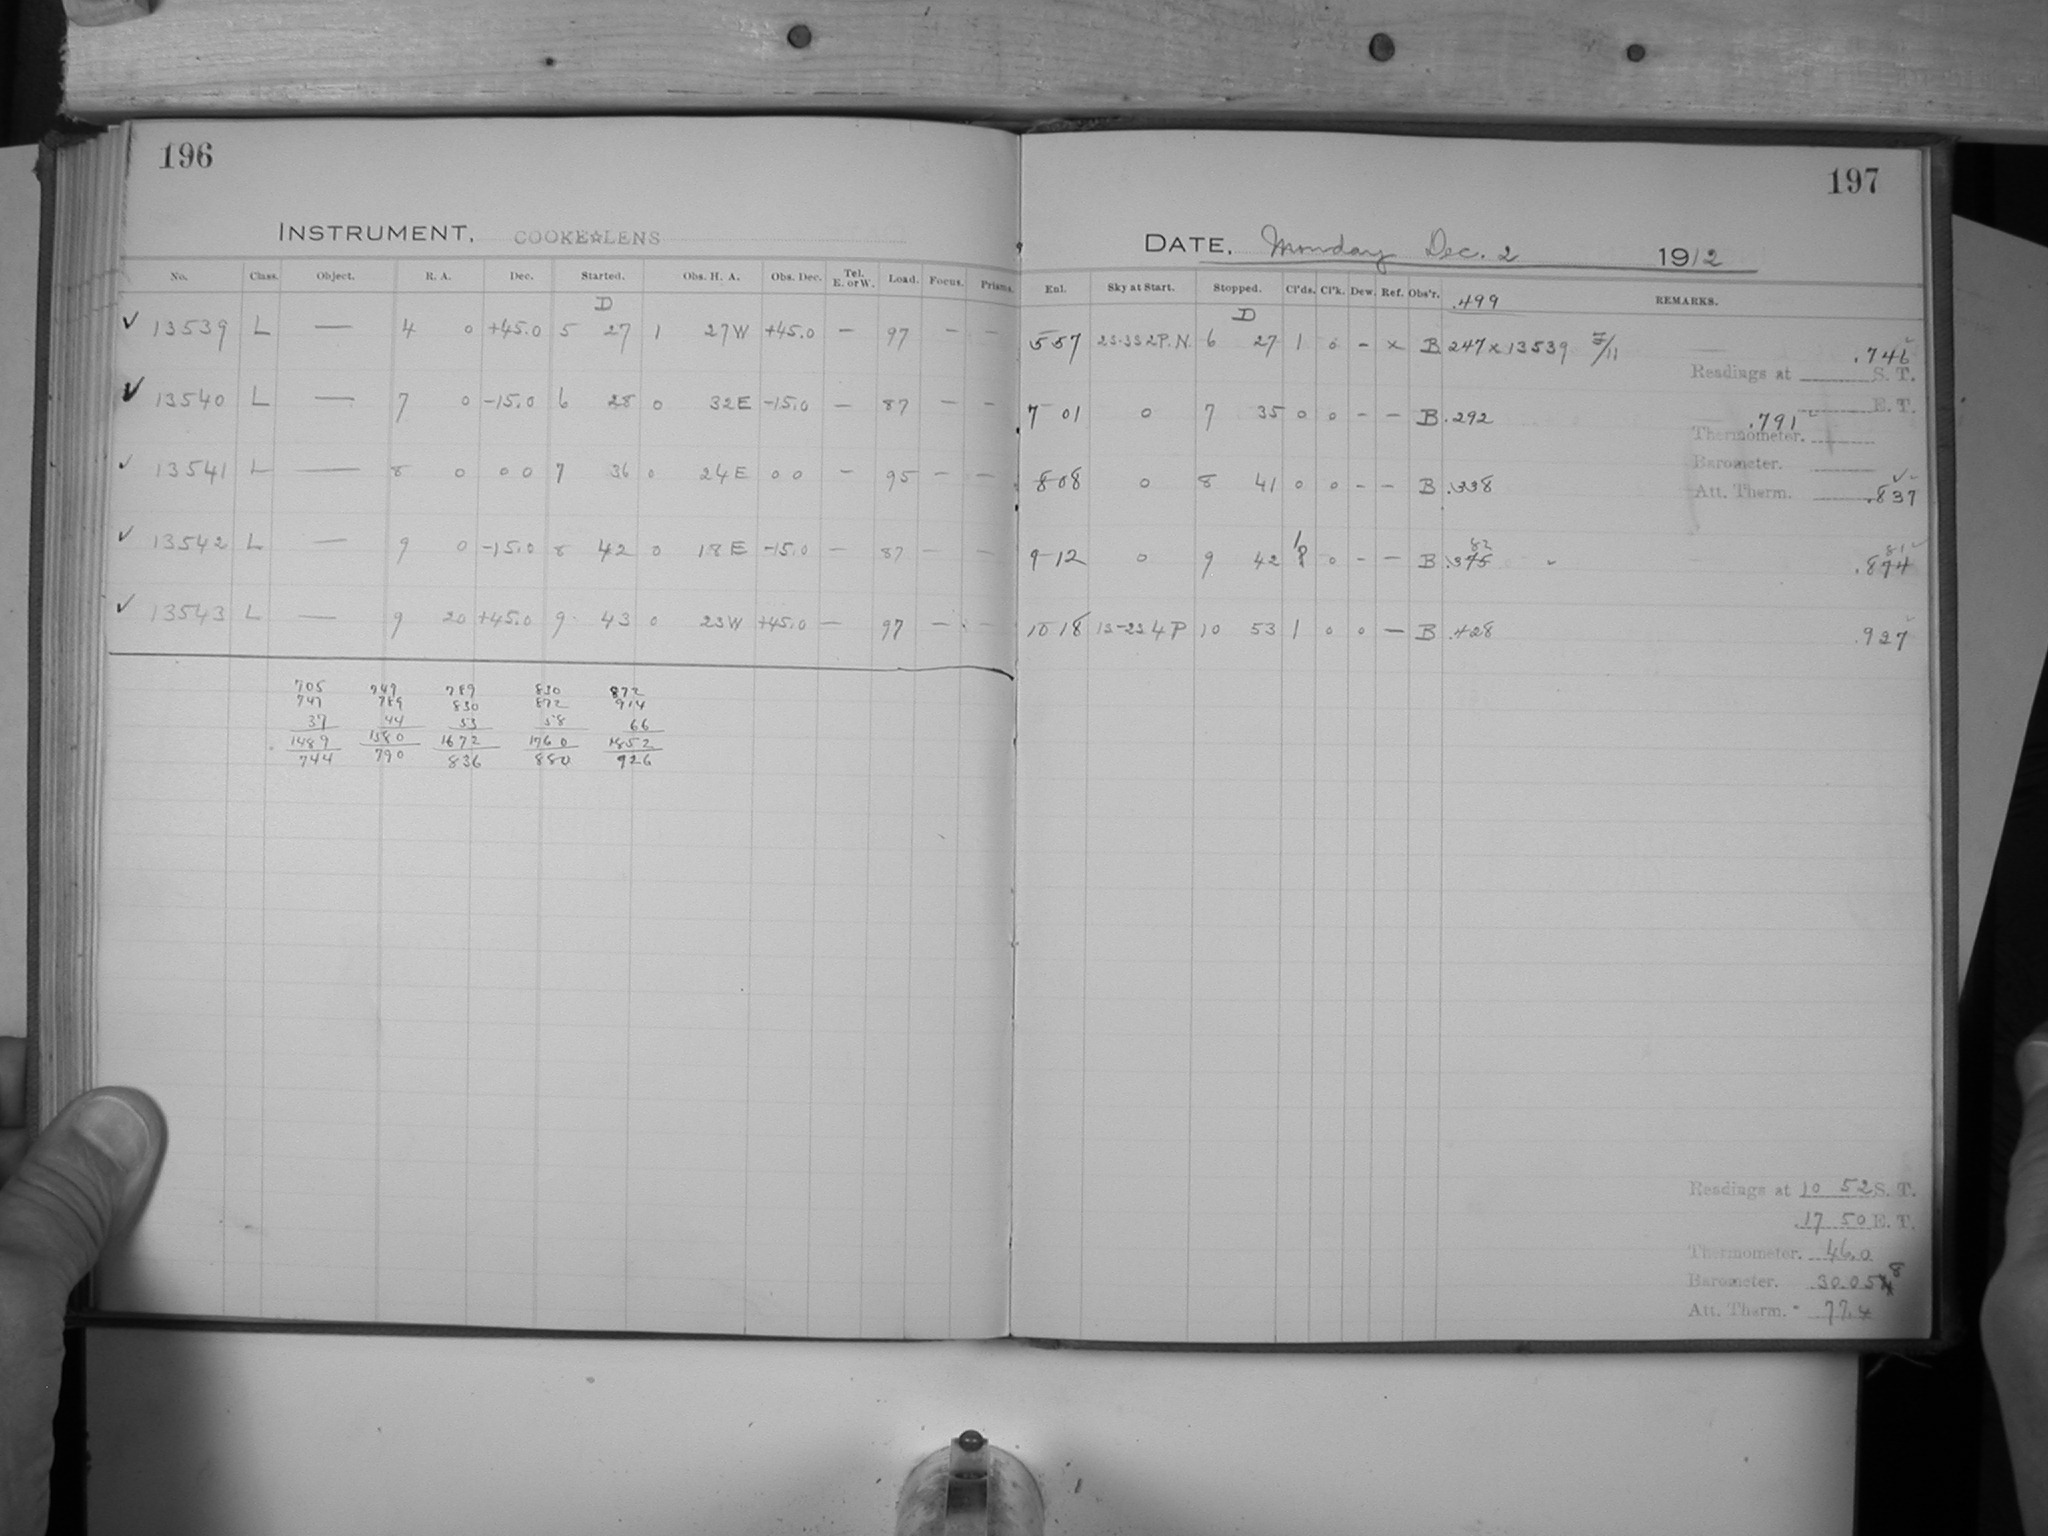 196
INSTRUMENT. COOKE☆LENS
No. Class. Object. R. A. Dec. Started. Obs. H. A. Obs. Dec. Tel. E. or W. Load. Focus. Prisms.
D
✓ 13539 L — 4 0 +45.0 5 27 1 27W +45.0 — 97 — —
✓ 13540 L — 7 0 -15.0 6 28 0 32E -15.0 — 87 — —
✓ 13541 L — 8 0 0 0 7 36 0 24E 0 0 — 95 — —
✓ 13542 L — 9 0 -15.0 8 42 0 18E -15.0 — 87 — —
✓ 13543 L — 9 20 +45.0 9 43 0 23W +45.0 — 97 — —
705 749 789 830 872
747 789 830 872 914
37 44 53 58 66
1489 1580 1672 1760 1852
744 790 836 880 926
197
DATE. Monday Dec. 2 1912
Exl. Sky at Start. Stopped. Cl'ds. Cl'k. Dew. Ref. Obs'r. .499 REMARKS.
D
557 23-33 2P.N. 6 27 1 0 - x B 247x13539 .746
Readings at S. T.
E. T.
7 01 0 7 35 0 0 - - B .292 .791
Thermometer.
Barometer.
8 08 0 8 41 0 0 - - B .338
Att. Therm. .837
82 81
9 12 0 9 42 1 0 - - B .375 .874
10 18 13-23 4P 10 53 1 0 0 — B .428 .927
Readings at 10 52 S. T.
17 50 E. T.
Thermometer. 46.0
Barometer. 30.058
Att. Therm. 77.4